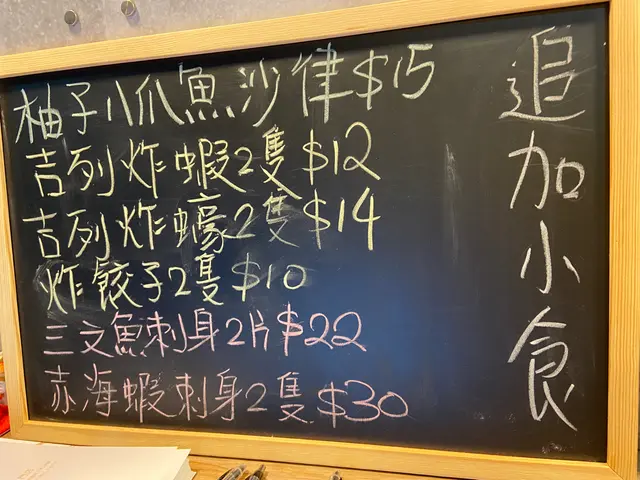 追加小食
柚子八爪魚沙律$15
吉列炸蝦2隻$12
吉列炸蠔2隻$14
炸餃子2隻$10
三文魚刺身2片$22
赤海蝦刺身2隻$30